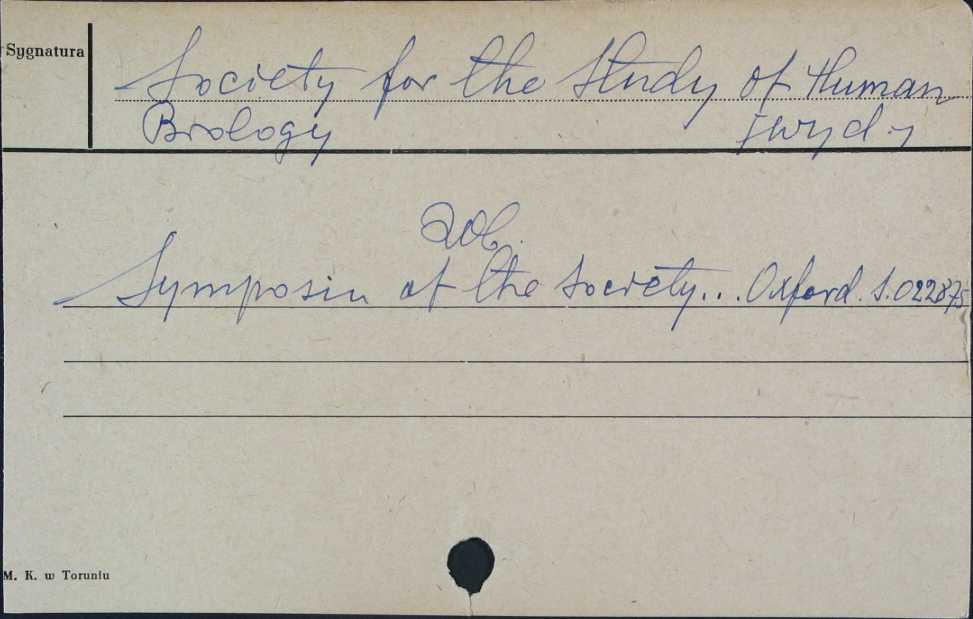 Sygnatura
Society for the Study of Human
Biology [wyd.]
zob.
Symposia of the Society... Oxford. S.022875
M. K. w Toruniu